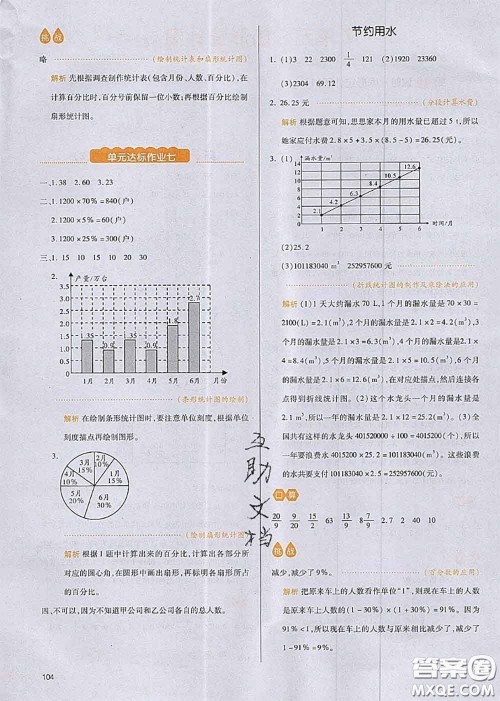 挑战
略 (绘制统计表和扇形统计图)
解析 先根据调查制作统计表(包含月份、人数、百分比),在
计算百分比时,百分号前保留一位小数;再根据百分比绘制
扇形统计图。
单元达标作业七
一、1.38 2.60 3.23
二、1.1200×70%=840(户)
2.1200×5%=60(户)
3.1200×25%=300(户)
三、1.35 15 10 15 20 30
2. 产量/万台
2.7
1.8
1.35 0.9 1.35
1月 2月 3月 4月 5月 6月 月份
(条形统计图的绘制)
解析 在绘制条形统计图时,要注意单位刻度,根据单位
刻度描点再绘制图形。
3.
1月 15%
2月 10%
3月 15%
4月 10%
5月 20%
6月 30%
(绘制扇形统计图)
解析 根据1题中计算出来的百分比,计算出各部分所对
应的圆心角,在圆中画出扇形,再标明各扇形的名称及所占
的百分比。
四、不可以,因为不知道甲公司和乙公司各自的总人数。
104
节约用水
1.(1)3 22 2300 1/4 121 (2)1920 23360
(3)2304 69.12
2.26.25元 (分段计算水费)
解析 根据题意可知,思思家本月的用水量已超过5t,所以
她家应付水费2.8×5+3.5×(8.5-5)=26.25(元)。
3.(1) 漏水量/m³
2.1 4.2 6.3 8.4 10.5 12.6
0 1 2 3 4 5 6 时间/月
(2)25.2
(3)101183040m³ 252957600元
(折线统计图的制作及乘除法的应用)
解析 (1)1天大约漏水70L,1个月的漏水量是70×30=
2100(L)=2.1(m³),2个月的漏水量是2.1×2=4.2(m³),
3个月的漏水量是2.1×3=6.3(m³),4个月的漏水量是2.1
×4=8.4(m³),5个月的漏水量是2.1×5=10.5(m³),6个
月的漏水量是2.1×6=12.6(m³),在对应处描点,然后连接各
点得到折线统计图。(2)这个水龙头一个月的漏水量是
2.1m³,所以一年的漏水量是2.1×12=25.2(m³)。(3)全
国共有这样的水龙头401520000÷100=4015200(个),所以
一年要浪费水25.2×4015200=101183040(m³),这些浪费
的水共要支付101183040×2.5=252957600(元)。
口算
20/9 9/20 15/2 63 13/9 8/7 2.7 2 40 10
挑战
减少,减少了9%。 (百分数的应用)
解析 把原来车上的人数看作单位“1”,则现在车上的人数
是原来车上人数的(1-30%)×(1+30%)=91%。因为
91%<1,所以现在车上的人数与原来相比减少了,减少了1-
91%=9%。
互助文档
答案圈
MXQE.COM